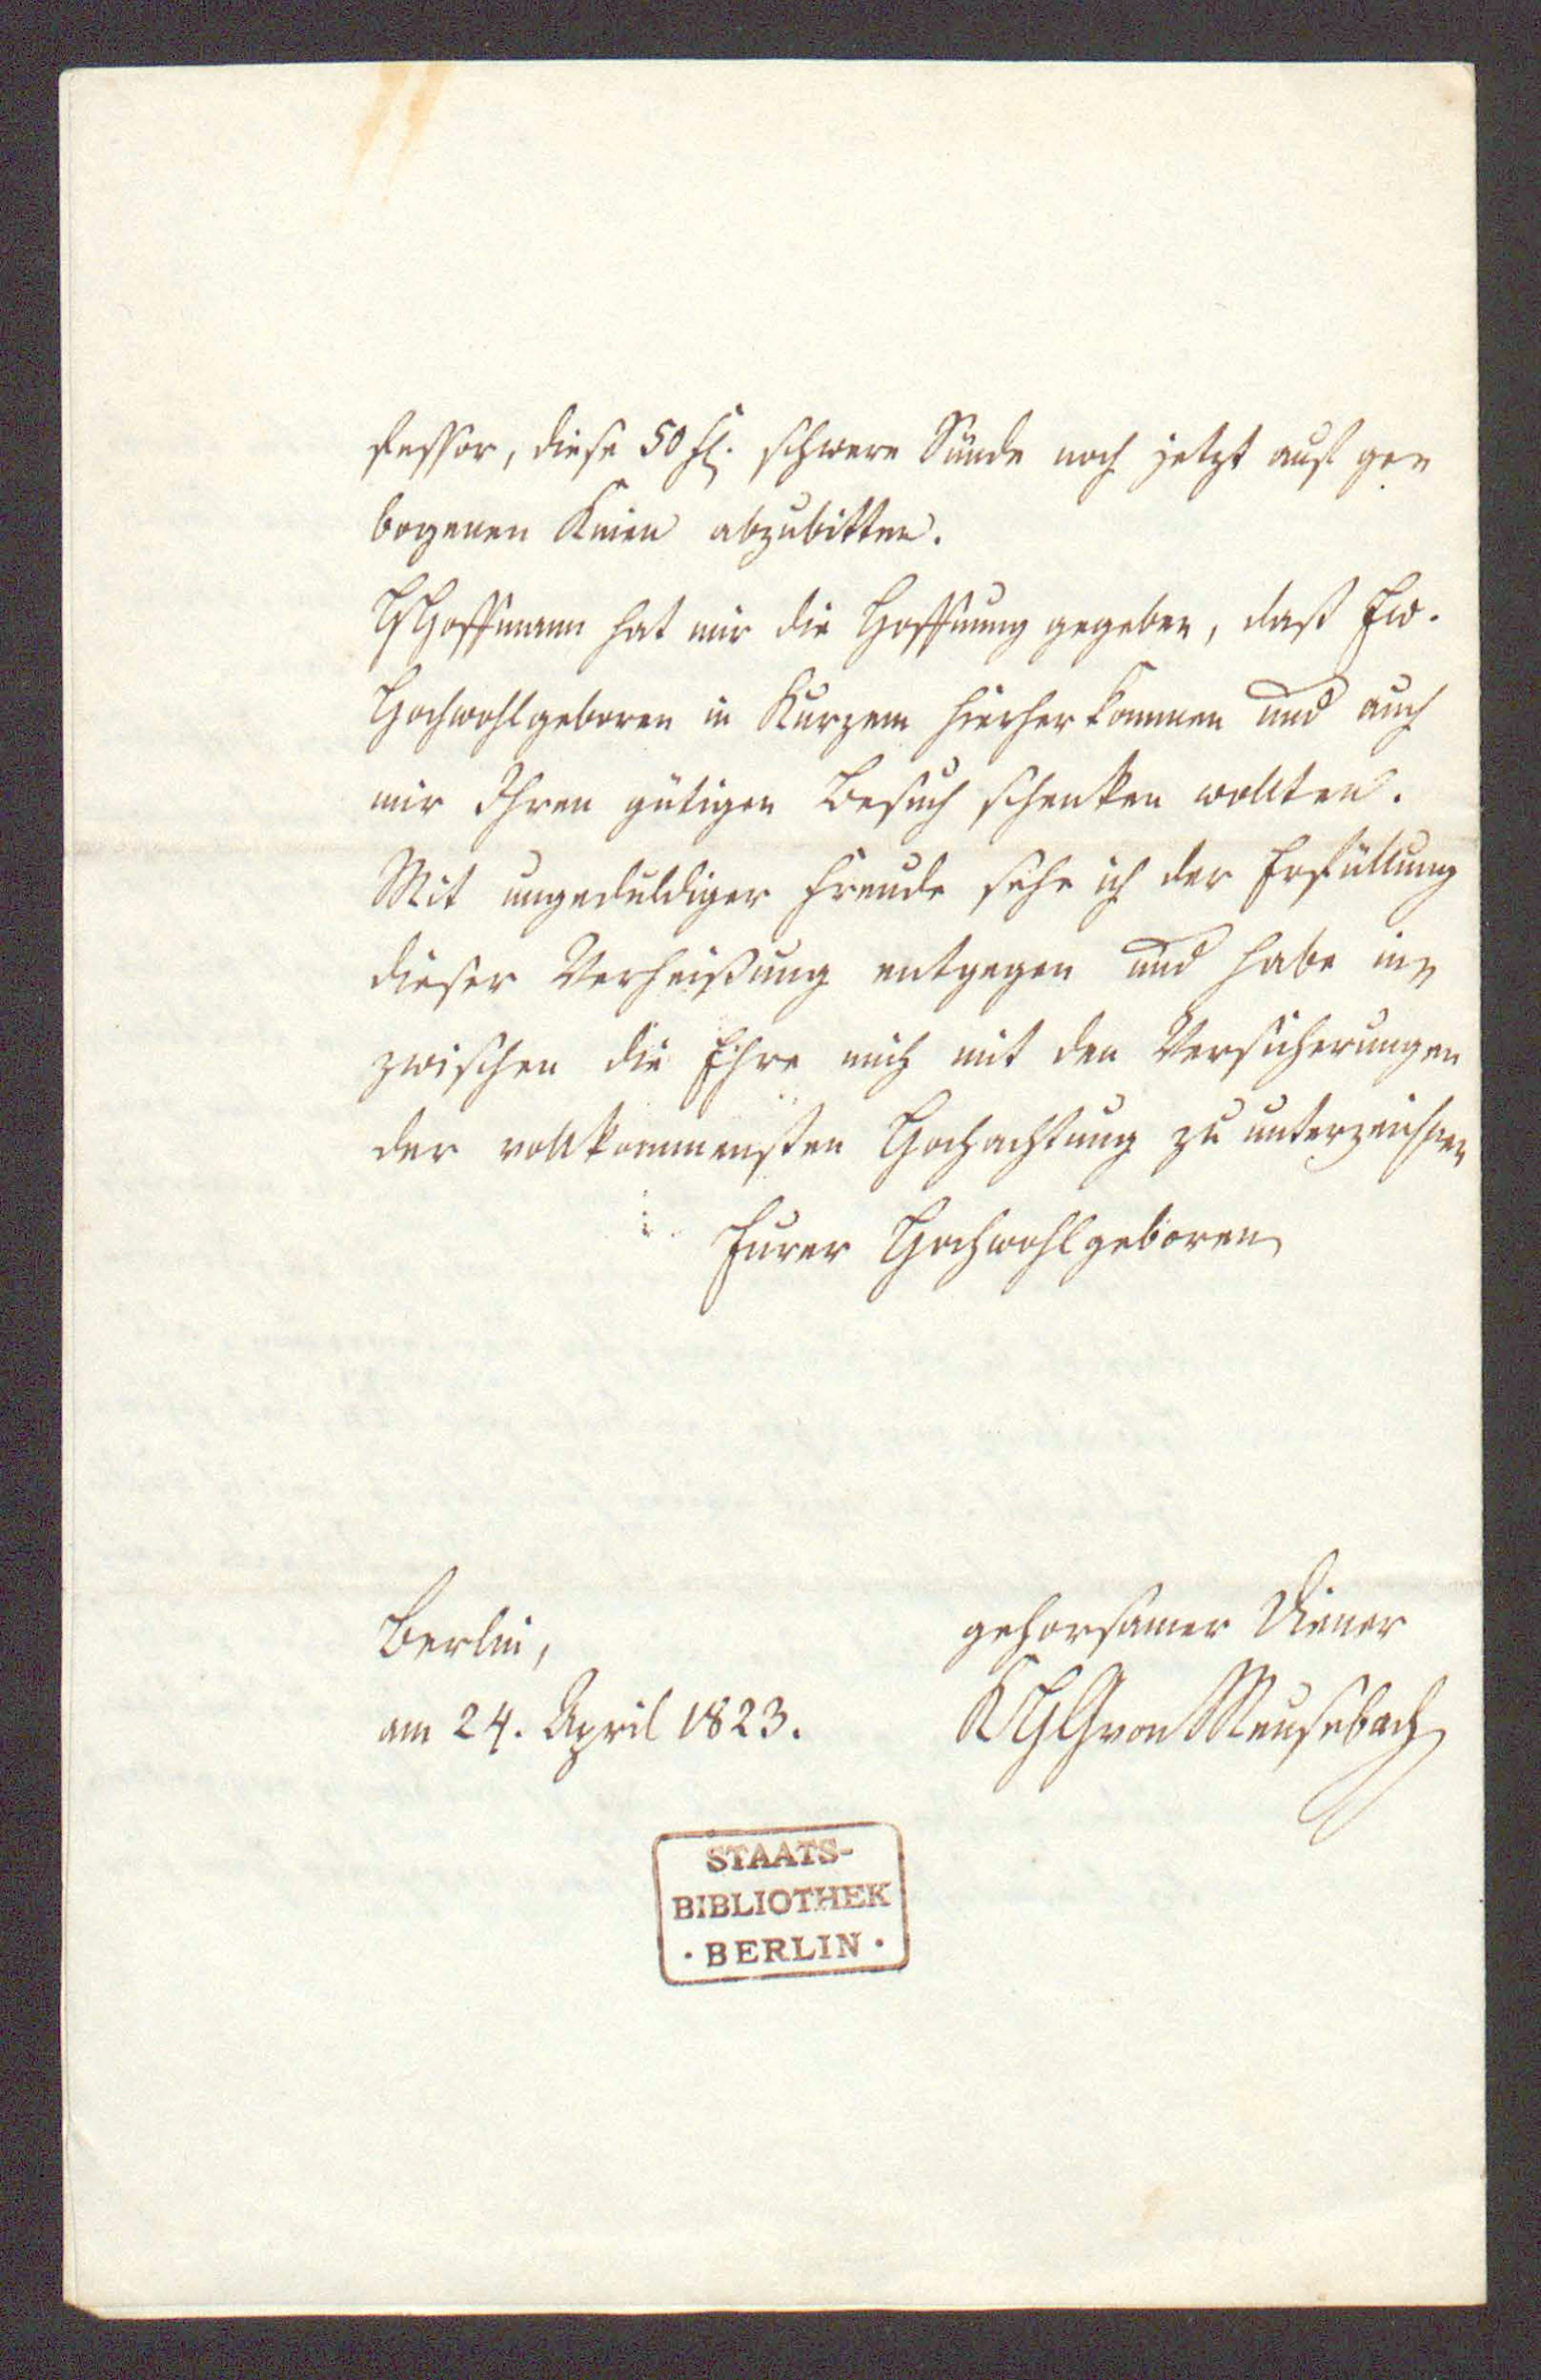 fessor, diese 50 fl. schwere Sünde noch jetzt auf ge-
bogenen Knien abzubitten.
HHoffmann hat mir die Hoffnung gegeben, daß Ew.
Hochwohlgeboren in Kurzem hierher kommen und auch
mir Ihren gütigen Besuch schenken wollten.
Mit ungeduldiger Freude sehe ich der Erfüllung
dieser Verheißung entgegen und habe in-
zwischen die Ehre mich mit den Versicherungen
der vollkommensten Hochachtung zu unterzeichnen
Eurer Hochwohlgeboren
Berlin,
am 24. April 1823.
gehorsamer Diener
KHGvonMeusebach
STAATS-
BIBLIOTHEK
· BERLIN ·